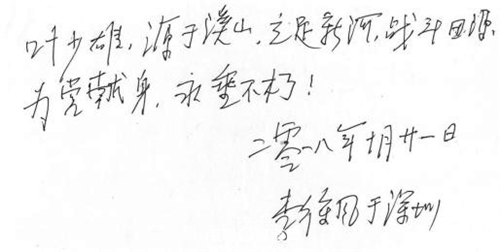 叶少雄，源于溪山，立足新河，战斗田源，
为党献身，永垂不朽！
二零一八年十月廿一日
李维风于深圳